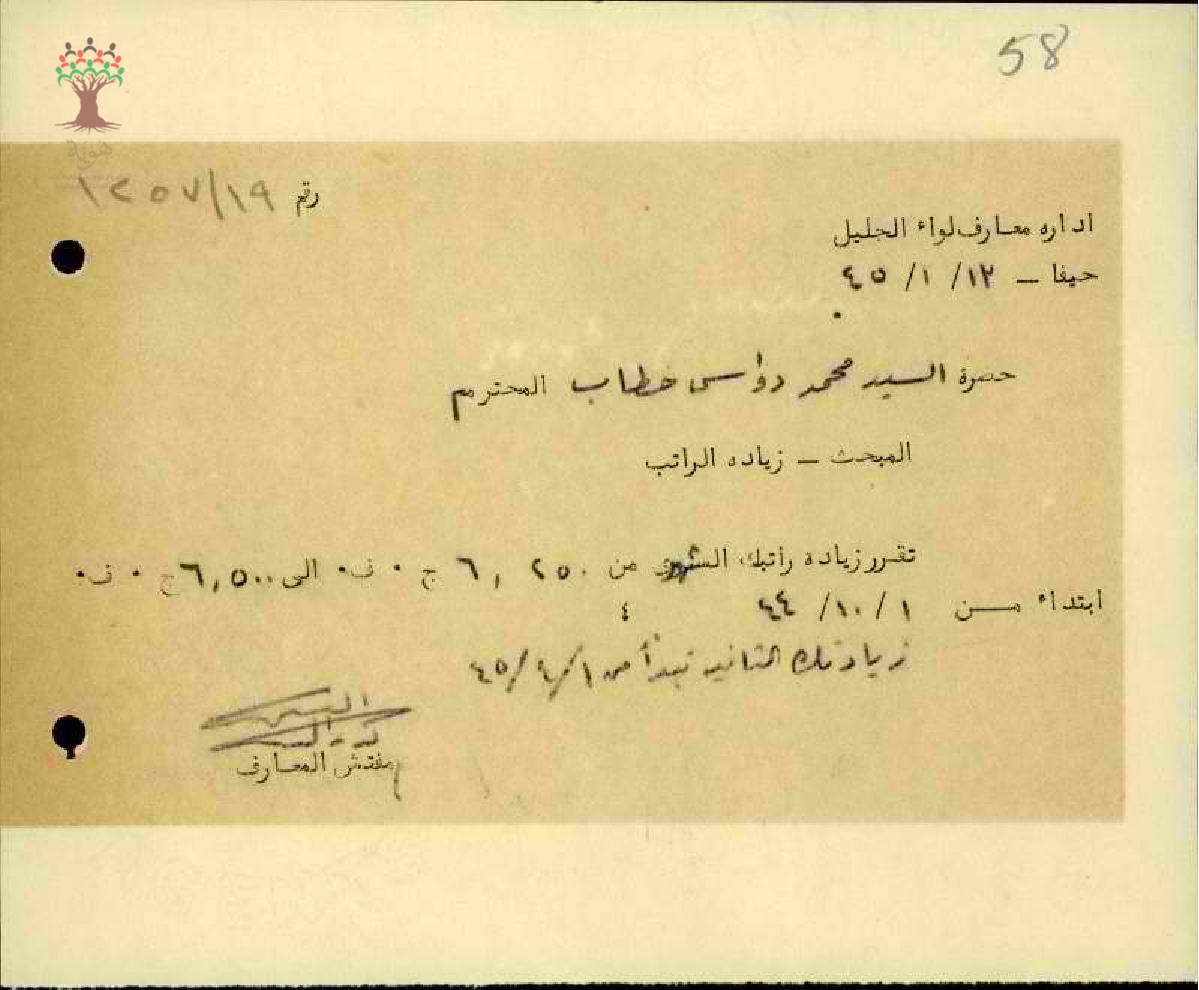 58
هوية
رقم ١٢٥٧/١٩
اداره معارف لواء الجليل
حيفا – ١٢/ ١/ ٤٥
حضرة السيد محمد دواسى خطاب المحترم
المبحث – زياده الراتب
تقرر زياده راتبك الشهرى من ٦,٢٥٠ ج ٠ ف٠ الى ٦,٥٠٠ ج ٠ ف٠
ابتداء من ١/ ١٠/ ٤٤
٤
زيادتك الثانيه تبدأ من ١/ ٤/ ٤٥
مفتش المعارف